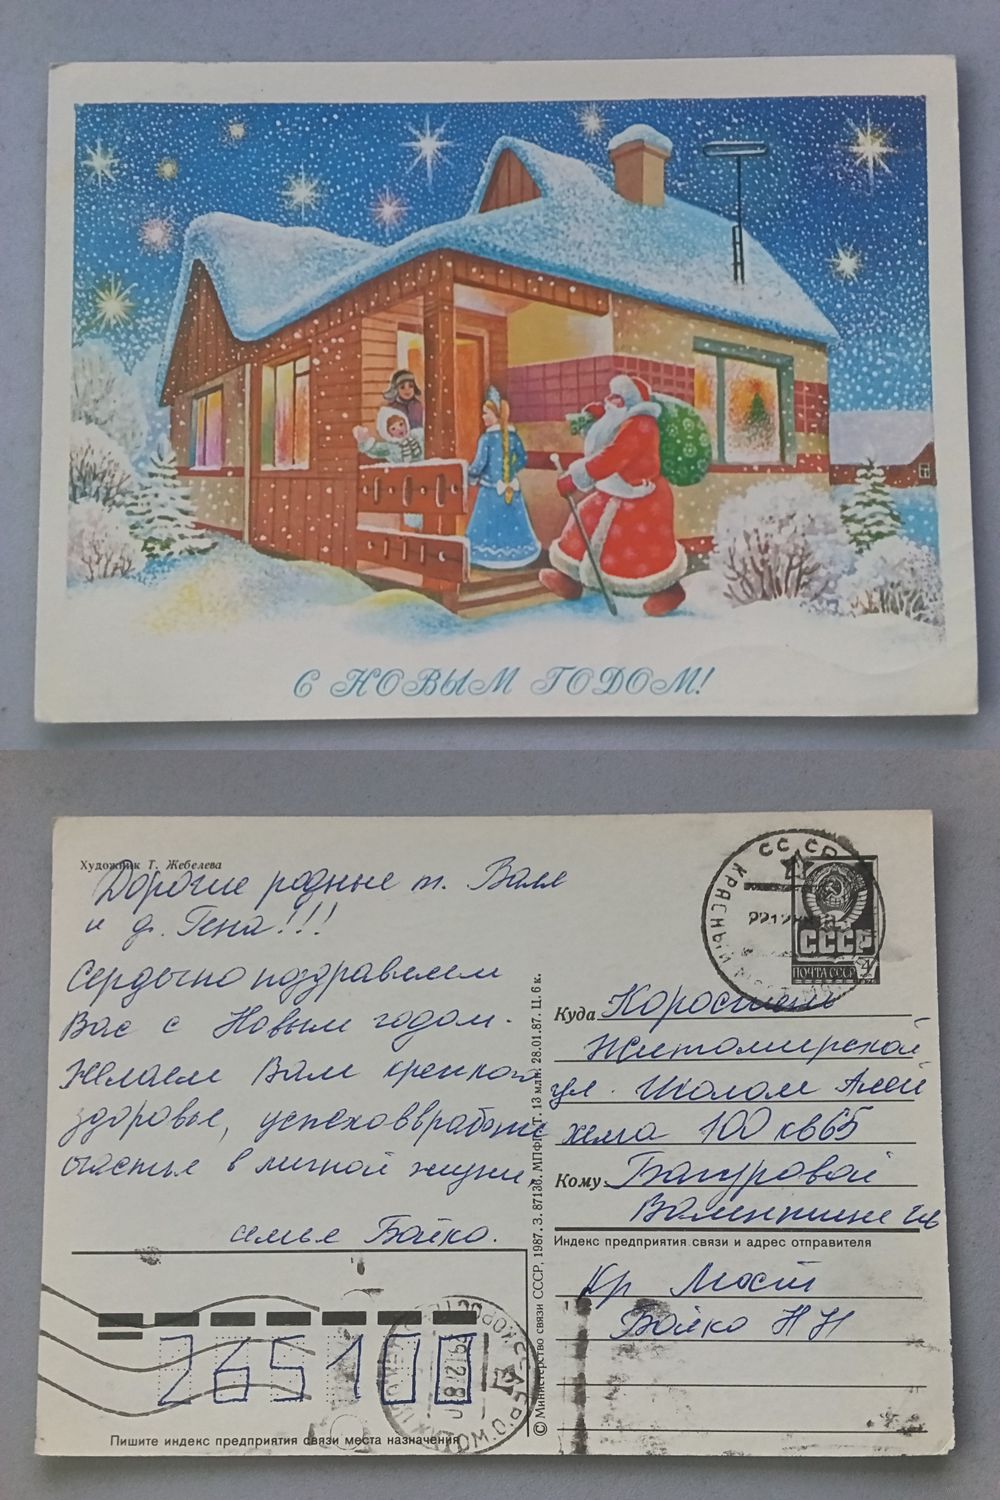 С НОВЫМ ГОДОМ!
Художник Т. Жебелева
Дорогие родные т. Валя
и д. Гена!!!
Сердечно поздравляем
Вас с Новым годом.
Желаем Вам крепкого
здоровье, успехов в работе
счастье в личной жизни,
семье Бойко.
СССР
КРАСНЫЙ
СССР
ПОЧТА СССР
Куда Коростень
Житомирской
ул. Шолом Алей
хема 100 кв 65
Кому Багуровой
Валентине Ив
Индекс предприятия связи и адрес отправителя
Кр Мост
Бойко Н Н
265100
Пишите индекс предприятия связи места назначения
© Министерство связи СССР, 1987. З. 87138. МПФГ. Т. 13 млн. 28.01.87. Ц. 6 к.